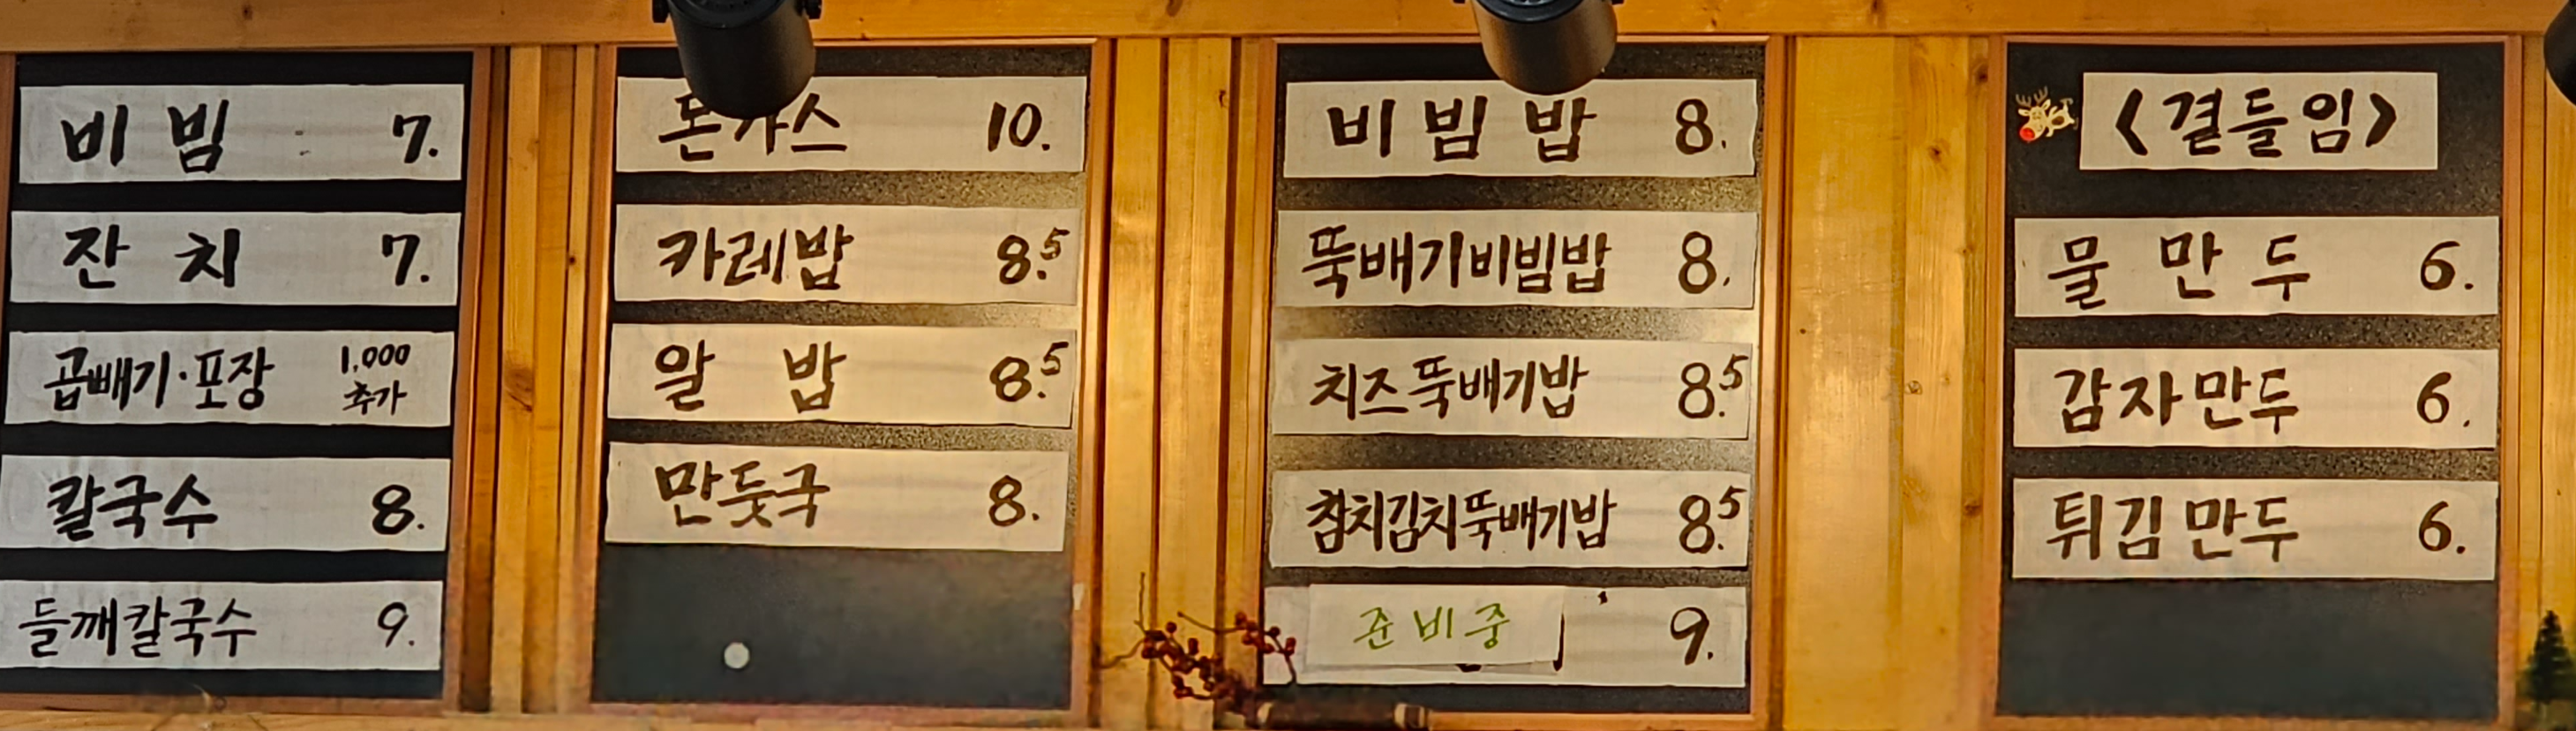 비빔 7.
잔치 7.
곱빼기·포장 1,000 추가
칼국수 8.
들깨칼국수 9.
돈가스 10.
카레밥 8.5
알밥 8.5
만둣국 8.
비빔밥 8.
뚝배기비빔밥 8.
치즈뚝배기밥 8.5
참치김치뚝배기밥 8.5
준비중 9.
<곁들임>
물만두 6.
감자만두 6.
튀김만두 6.